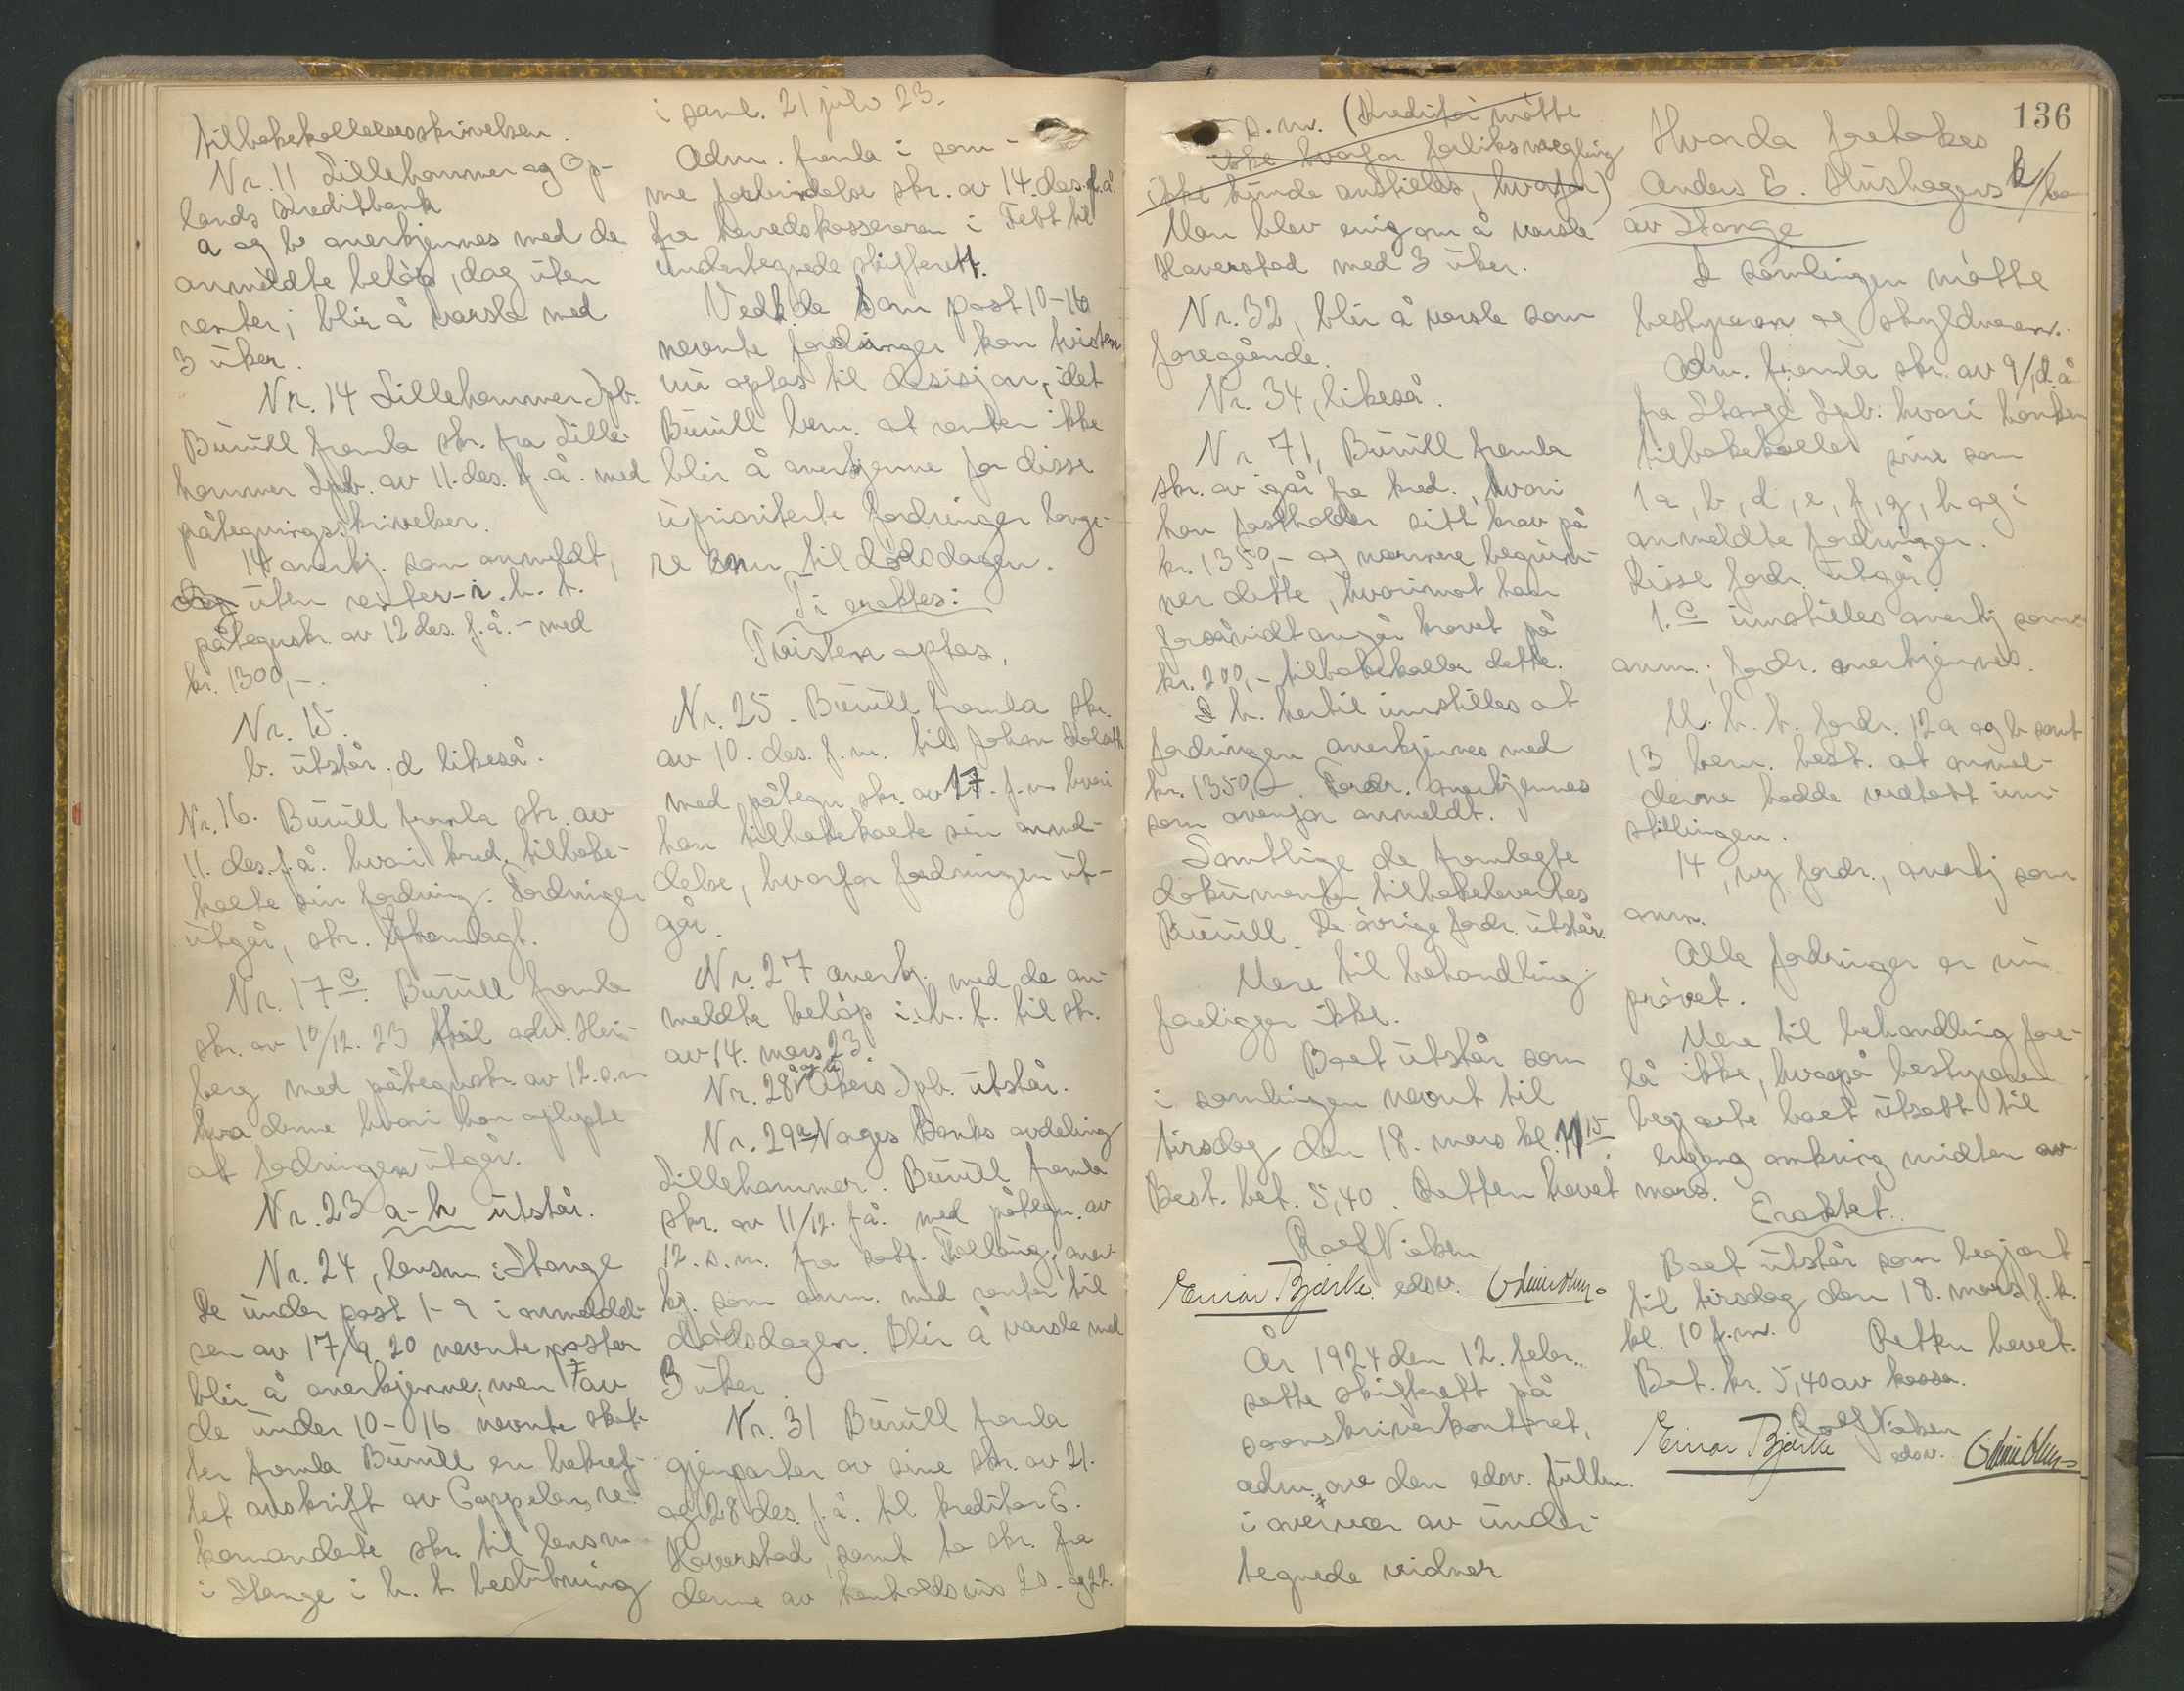 tilbakekallelsesskrivelsen.
Nr. 11 Lillehammer og Op-
lands Kreditbank
a og b anerkjennes med de
anmeldte beløp, dog uten
renter; blir å varsle med
3 uker.
Nr. 14 Lillehammer Spb.
Buvill fremla skr. fra Lille-
hammer Spb. av 11. des. f.å. med
påtegningsskrivelser.
14 anerkj. som anmeldt,
dog uten renter - i. h. t.
påtegnskr. av 12 des. f.å. - med
kr. 1300,-.
Nr. 15.
b. utstår. d likeså.
Nr. 16. Buvill fremla skr. av
11. des. f.å. hvori kred. tilbake-
kalte sin fordring. Fordringen
utgår, skr. fremlagt.
Nr. 17 c. Buvill fremla
skr. av 10/12. 23 til adv. Hei-
berg med påtegnskr. av 12. s.m
fra denne hvori han oplyste
at fordringen utgår.
Nr. 23 a-h utstår.
Nr. 24, lensm. i Stange
De under post 1-9 i anmeldel-
sen av 17/9 20 nevnte poster
blir å anerkjenne; men F av
de under 10-16 nevnte skat-
ter fremla Buvill en bekref-
tet avskrift av Cappelens re-
komanderte skr. til lensm
i Stange i h. t. beslutning
i saml. 21 juli 23.
Adm. fremla i sam-
me forbindelse skr. av 14. des. f.å.
fra herredskassereren i Tett til
undertegnede skifterett.
Vedk. de som post 10-16
nevnte fordringer kan tvisten
nu optas til desisjon, idet
Buvill bem. at renten ikke
blir å anerkjenne for disse
uprioriterte fordringer lenge-
re enn til dødsdagen.
Ti eraktes:
Tvisten optas.
Nr. 25. Buvill fremla skr.
av 10. des. f. m. til Johan
med påtegn. skr. av 17. f. m hvori
han tilbakekalte sin anmel-
delse, hvorfor fordringen ut-
går.
Nr. 27 anerkj. med de an-
meldte beløp i. h. t. til skr.
av 14. mars 23.
a og b
Nr. 28 Akers Spb. utstår.
Nr. 29a Norges Banks avdeling
Lillehammer. Buvill fremla
skr. av 11/12. f.å. med påtegn. av
12. s. m. fra satf. aner-
kj. som anm. med renter til
dødsdagen. Blir å varsle med
3 uker.
Nr. 31 Buvill fremla
gjenparter av sine skr. av 21.
og 28 des. f. å. til kreditor E.
Haverstad, samt to skr. fra
denne av henholdsvis 20. og 22.
s. m. (Kreditor møtte
ikke hvorfor forliksmegling
ikke kunde anstilles, hvorfor)
Man blev enig om å varsle
Haverstad med 3 uker.
Nr. 32, blir å varsle som
foregående.
Nr. 34, likeså.
Nr 71, Buvill fremla
skr. av igår fra kred., hvori
han fastholder sitt krav på
kr. 1350,- og nærmere begrun-
ner dette, hvorimot han
forsåvidt angår kravet på
kr. 200,- tilbakekaller dette.
I h. hertil innstilles at
fordringen anerkjennes med
kr. 1350,-. Fordr. anerkjennes
som ovenfor anmeldt.
Samtlige de fremlagte
dokumenter tilbakelevertes
Buvill. De øvrige fordr. utstår.
Mere til behandling
foreligger ikke.
Boet utstår som
i samlingen nevnt til
tirsdag den 18. mars kl. 11 15.
Best. bet. 5,40. Retten hevet
Rolf Nielsen
Einar Bjørke. edsv.
År 1924 den 12. febr.
sattes skifterett på
sorenskriverkontoret,
adm. av den edsv. fullm.
i overvær av under-
tegnede vidner
136
Hvorda foretokes
Anders E. Hushagens k/bo
av Stange
I samlingen møtte
bestyreren og skyldneren.
Adm. fremla skr. av 9/1 d.å
fra Stange Spb. hvori banken
tilbakekaller sine som
1a, b, d, e, f, g, h og i
anmeldte fordringer.
Disse fordr. utgår.
1. c innstilles anerkj som
anm.; fordr. anerkjennes.
M. h. t. fordr. 12a og b samt
13 bem. best. at anmel-
derne hadde vedtatt inn-
stillingen.
14, ny fordr., anerkj som
anm.
Alle fordringer er nu
prøvet.
Mere til behandling fore-
lå ikke, hvorpå bestyreren
begjærte boet utsatt til
engang omkring midten av
mars.
Eraktet.
Boet utstår som begjært
til tirsdag den 18. mars f. k.
kl. 10 f. m. Retten hevet.
Bet. kr. 5,40 av kassa.
Rolf Nielsen
Einar Bjørke edsv.